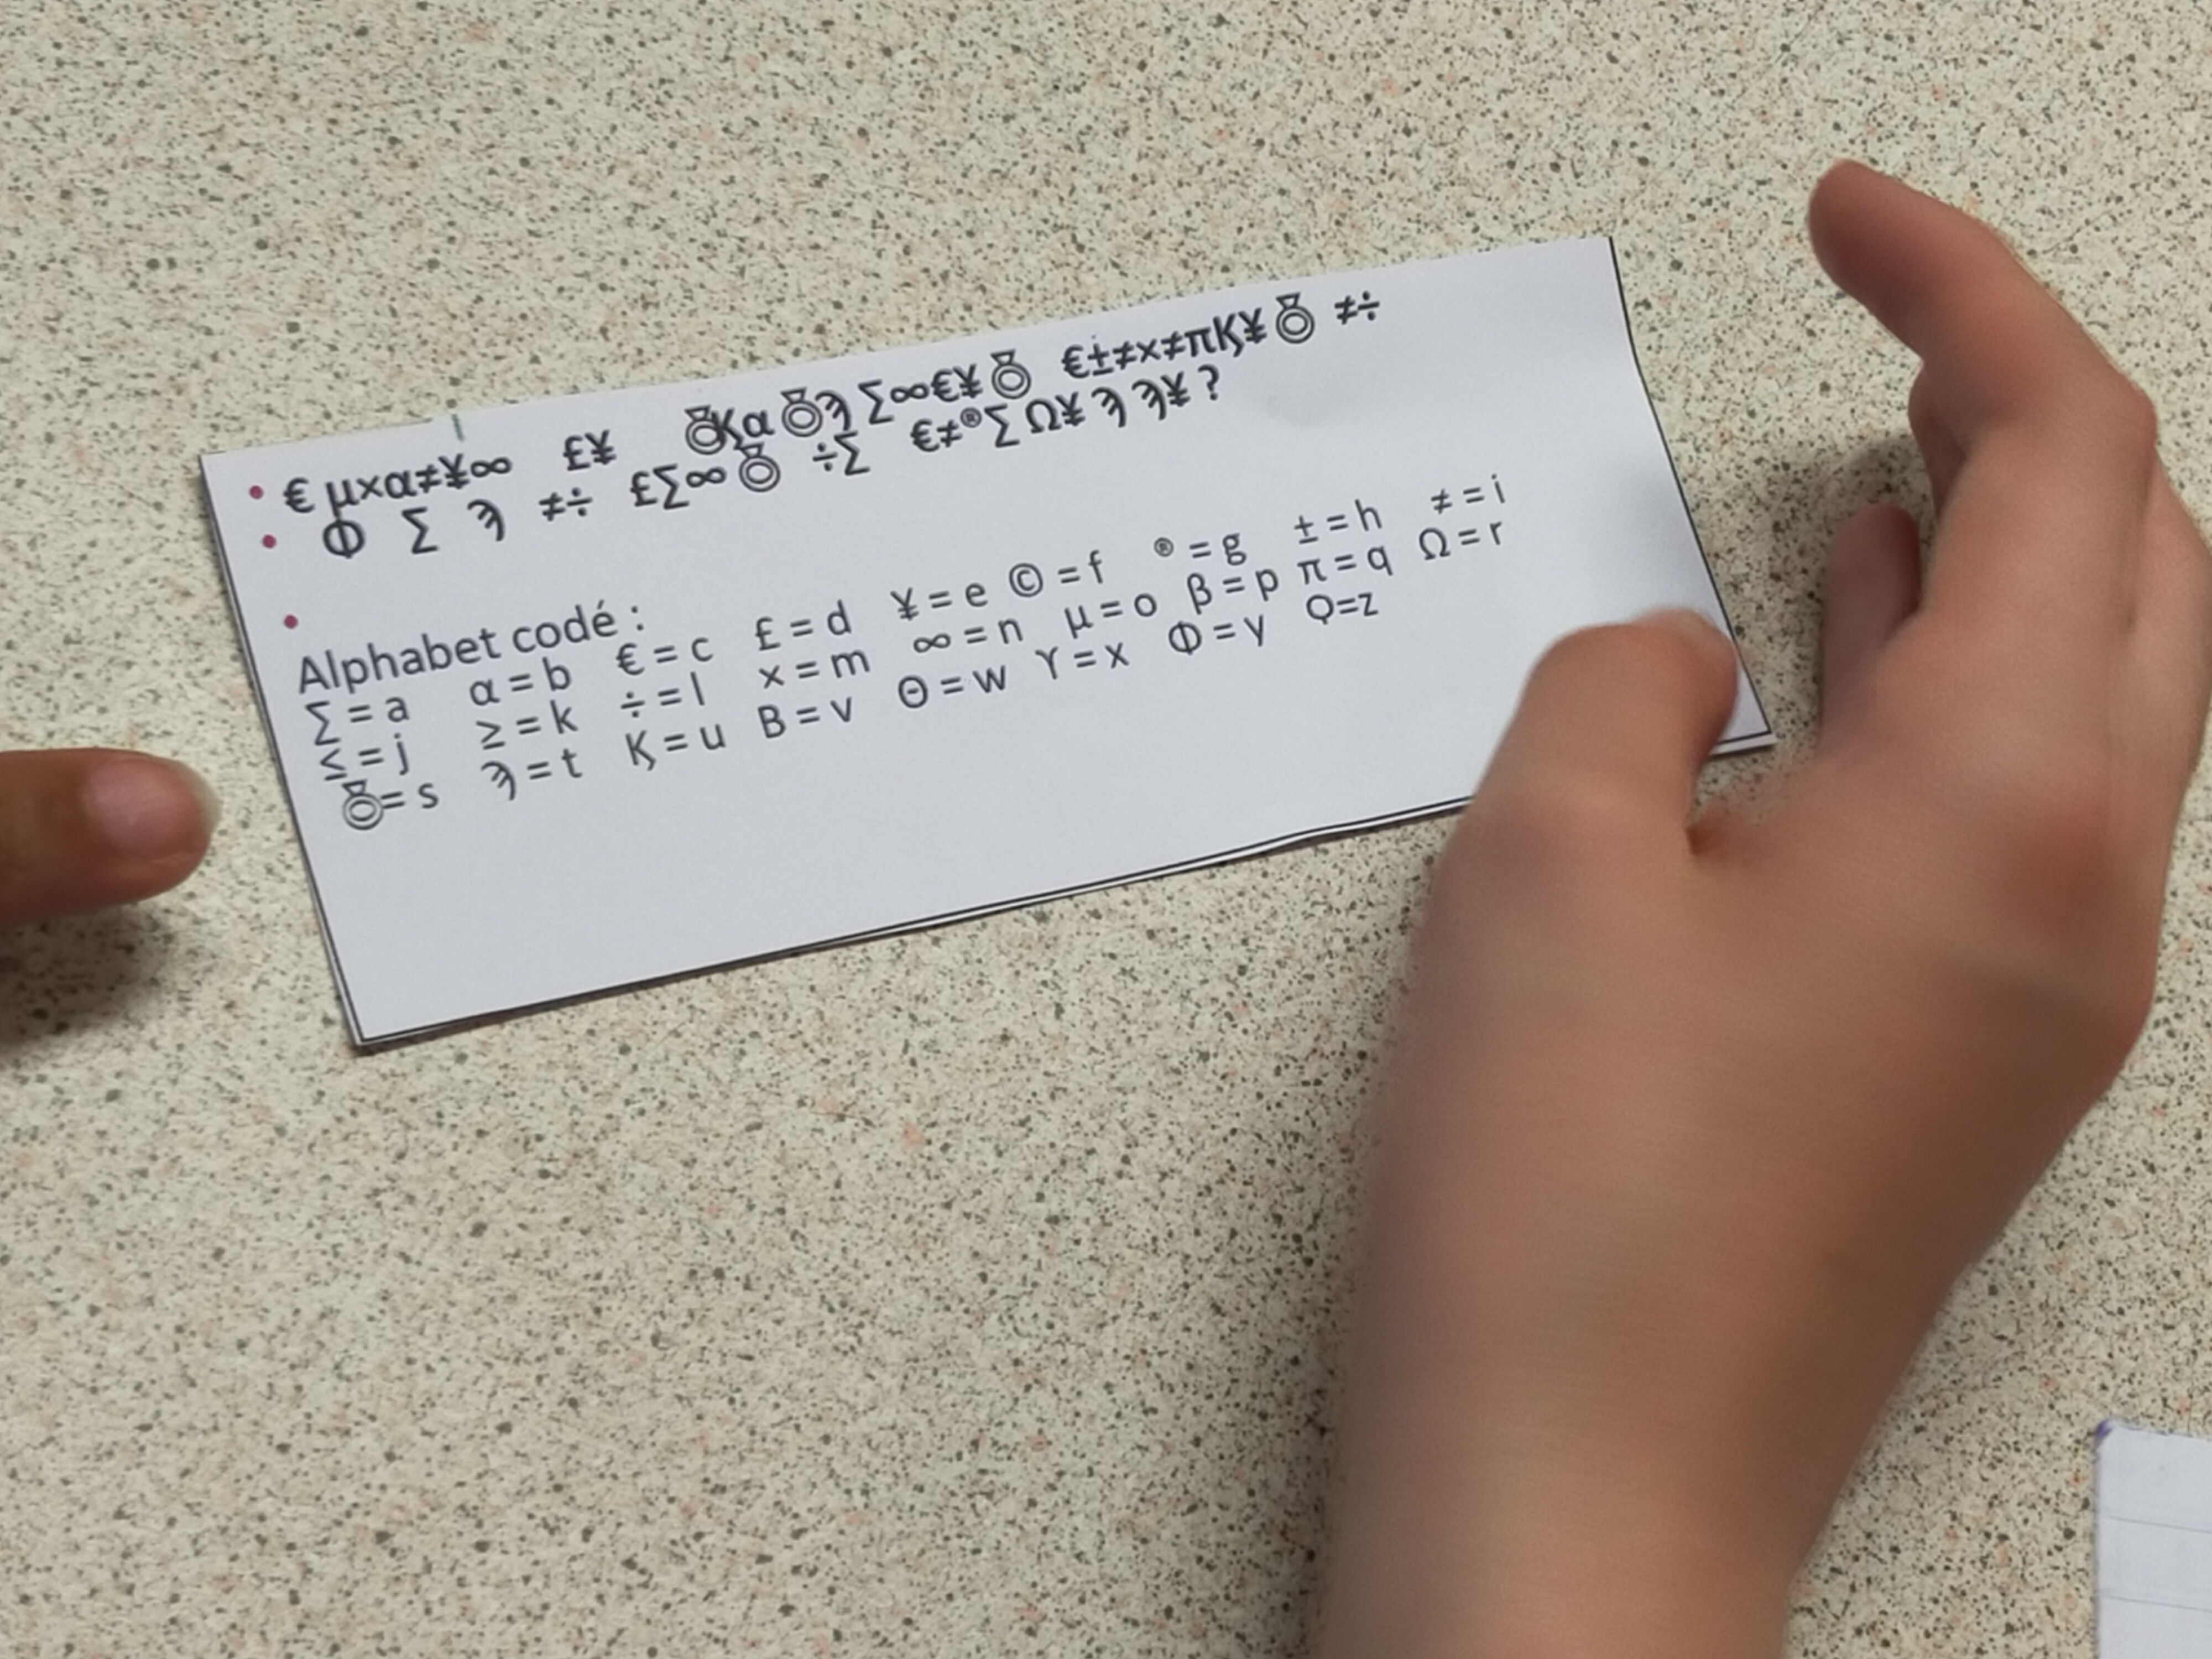 • € μ×α≠¥∞ £¥ ⍥Қα⍥Ϡ∑∞€¥⍥ €±≠×≠πҚ¥⍥ ≠÷
• Φ ∑ Ϡ ≠÷ £∑∞⍥ ÷∑ €≠®∑Ω¥ϠϠ¥ ?
•
Alphabet codé :
∑ = a α = b € = c £ = d ¥ = e © = f ® = g ± = h ≠ = i
≤ = j ≥ = k ÷ = l × = m ∞ = n μ = o β = p π = q Ω = r
⍥= s Ϡ = t Қ = u B = v Θ = w ϒ = x Φ = y Ϙ=z